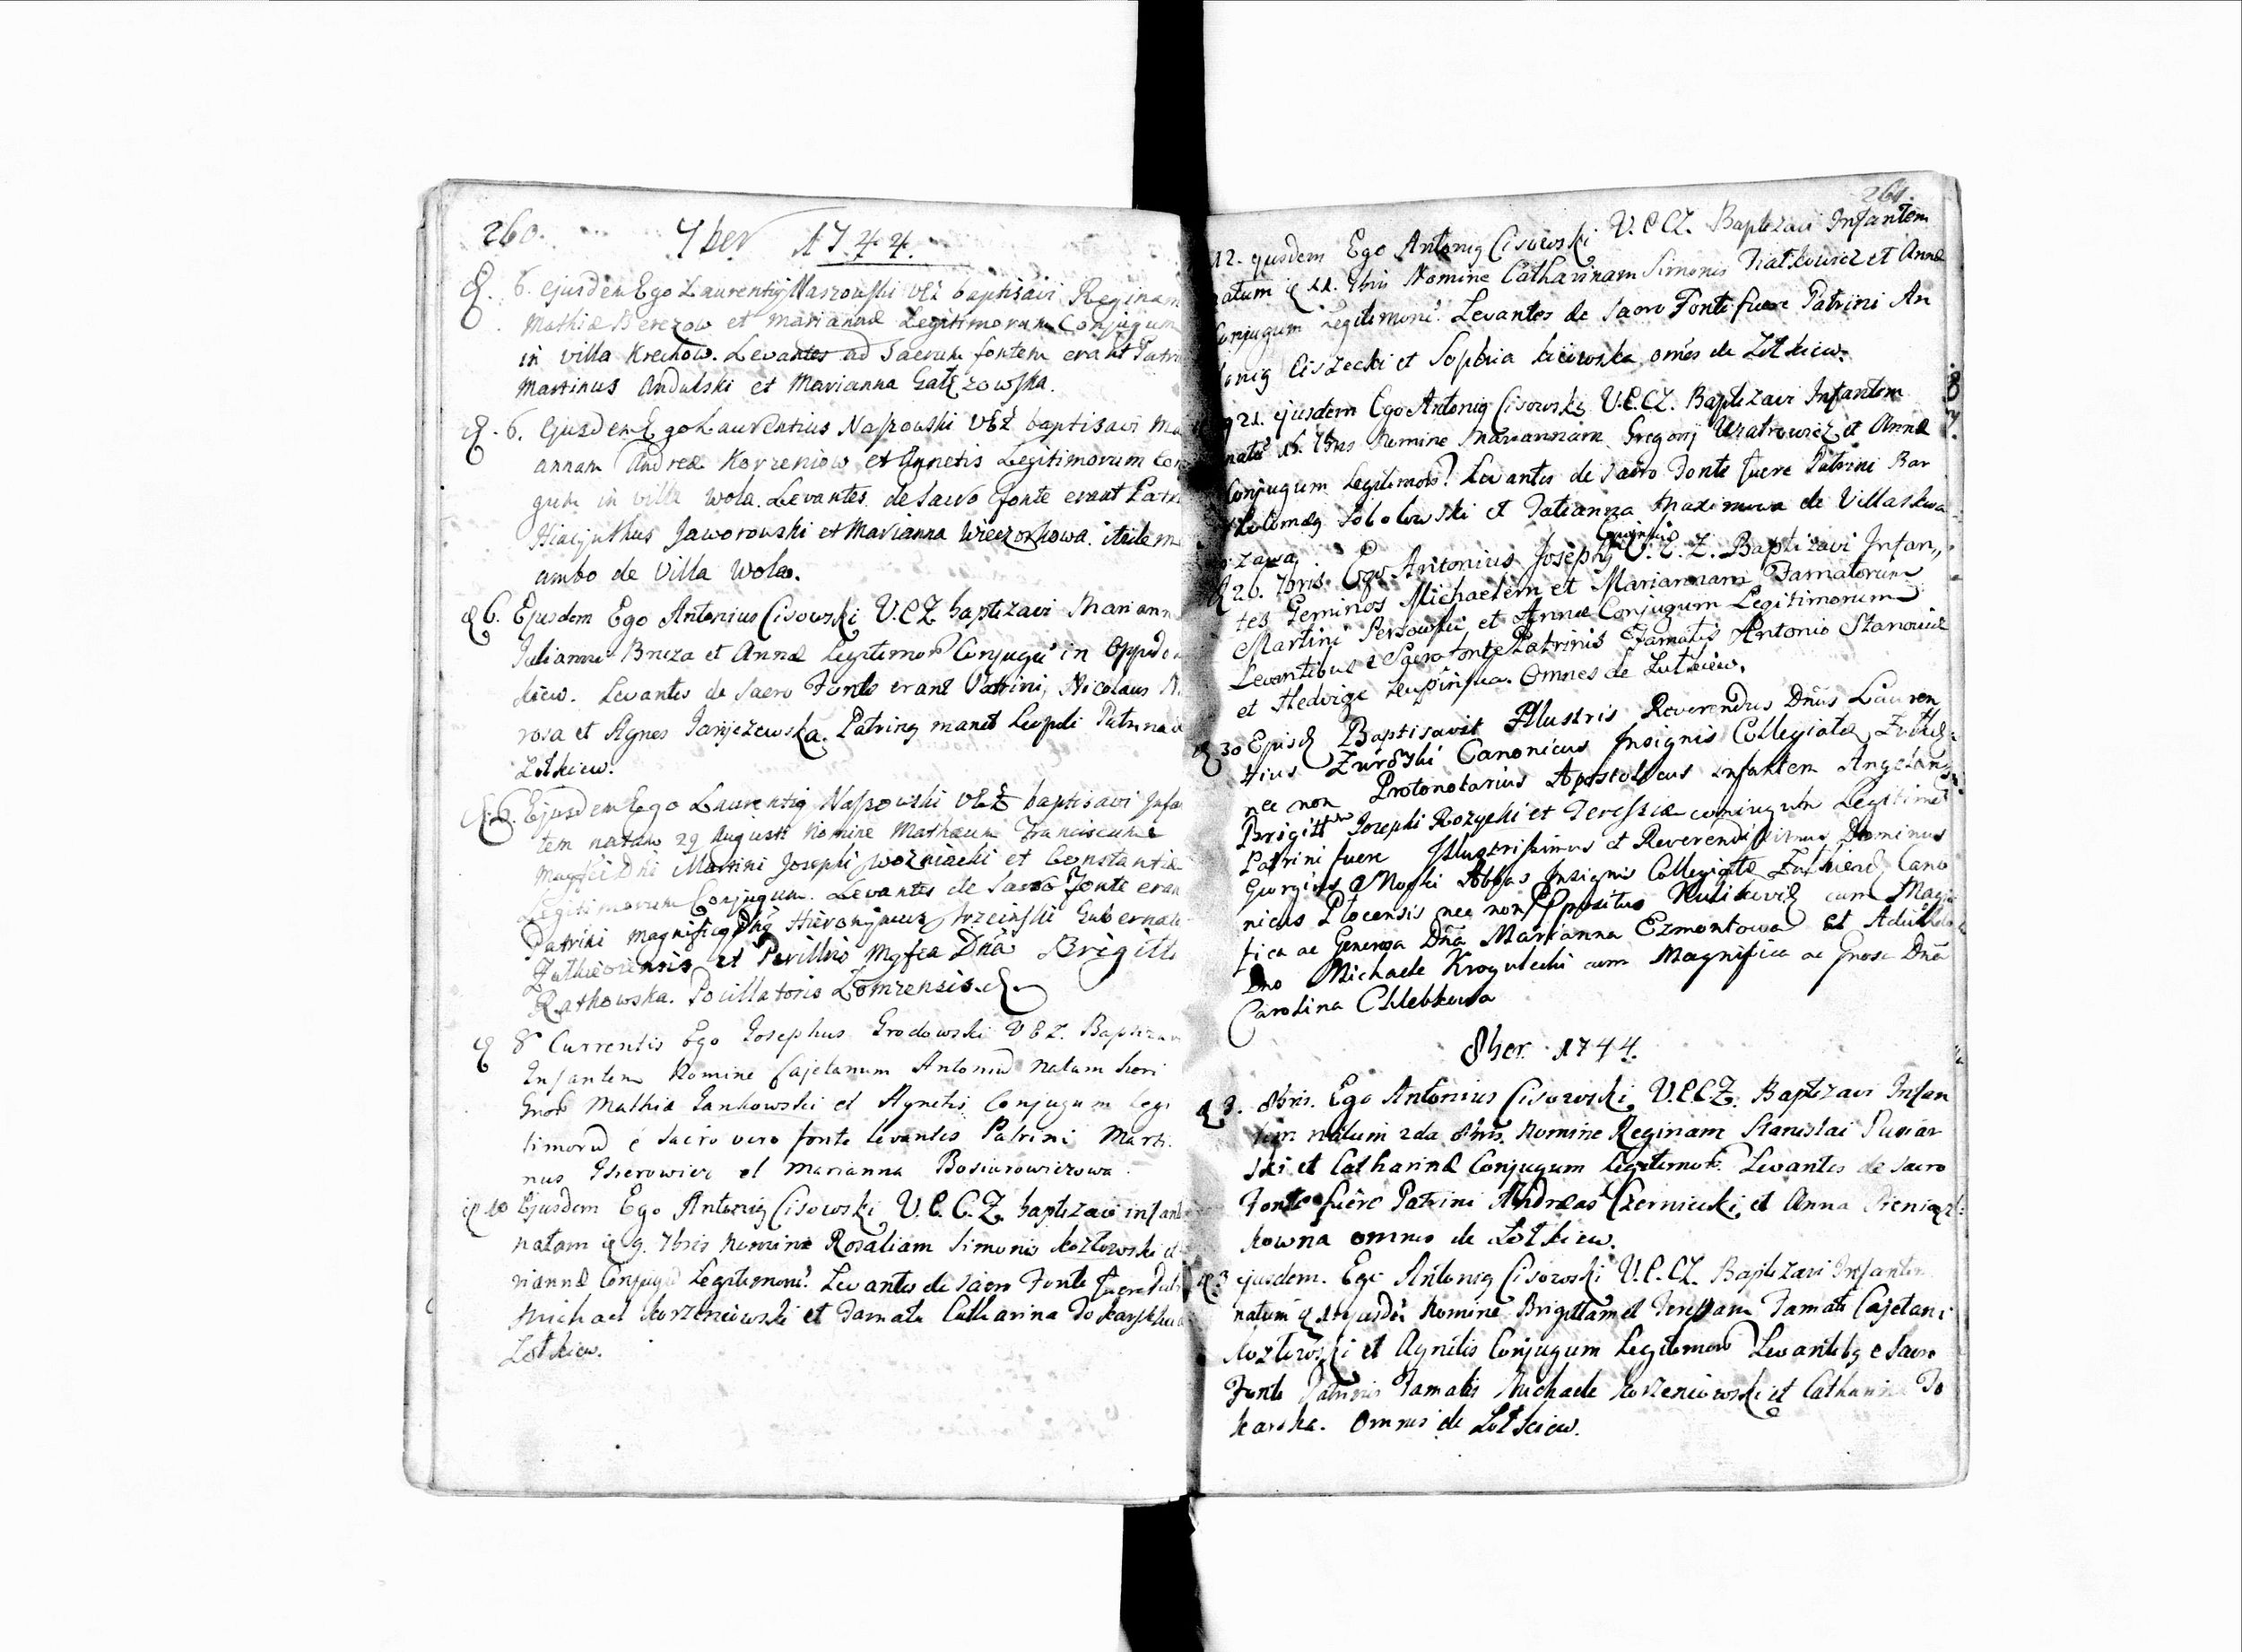 260. 7ber 1744.
6. ejusdem Ego Laurentiq Naszowski VEZ baptisavi Reginam
Mathiæ Berezow et Mariannæ Legitimorum Conjugum
in villa Krechow. Levantes ad Sacrum fontem erant Patri
Martinus Andulski et Marianna
6. Ejusdem Ego Laurentius Naszowski VEZ baptisavi Ma
annam Andreæ Korzeniow et Agnetis Legitimorum Con
gum in villa Wola. Levantes de Sacro fonte erant Patri
Hiacynthus Jaworowski et Marianna Wieczorkowa
ambo de Villa Wola.
6. Ejusdem Ego Antonius Cisowski V.C.Z. baptizavi Mariann
Julianni Bryza et Annæ Legitimor Conjugu in Oppido
kiew. Levantes de Sacro Fonte erant Patrini, Nicolaus
rosa et Agnes Janiczewska. Patring manet Leopoli Patrina
Zotkiew.
6. Ejusdem Ego Laurentiq Naszowski VEZ baptisavi Infa
tem natum 29 Augusti Nomine Mathæum Franciscum
Martini Josephi Wozniacki et Constantiæ
Legitimorum Conjugum. Levantes de Sacro Fonte eran
Patrini Magnificq Dnq Hieronymus Gubernat
et Perillris Mgfca Dña Brigitt
Ratkowska. Pocillatoris Lomzensis.
8 Currentis Ego Josephus Grodowski VEZ. Baptizav
Infantem Nomine Cajetanum Antoniu Natum heri
Mathiæ Jankowski et Agnetis Conjugum legi
timoru e Sacro vero fonte levantes Patrini Marti
nus et Marianna
10 Ejusdem Ego Antoniq Cisowski V.C.C.Z. baptizavi infant
natam 9. 7bris Nomine Rosaliam Simonis Kozlowski et
riannæ Conjugu Legitimoru. Levantes de Sacro Fonte fuere Patri
Michael Korzeniowski et Famata Catharina Tokarska
Zotkiew.
261.
12. ejusdem Ego Antoniq Cisowski V.C.C.Z. Baptizavi Infantem
natum 11. 7bris Nomine Catharinam Simonis et Annæ
Conjugum Legitimoru. Levantes de Sacro Fonte fuere Patrini An
toniq Ciszecki et Sophia omes de Zotkiew.
21. ejusdem Ego Antoniq Cisowski V.C.C.Z. Baptizavi Infantem
natu 7bris Nomine Mariannam Gregorij et Annæ
Conjugum Legitimor. Levantes de Sacro Fonte fuere Patrini Bar
tholomæq Sobolowski et Tatianna Maximowa de Villa Skwa
rzawa
20. 7bris Ego Antonius Josephq V.C.Z. Baptizavi Infan„
tes Geminos Michaelem et Mariannam Famatorum
Martini Persowski et Annæ Conjugum Legitimorum
Levantibus e Sacro fonte Patrinis Famatis Antonio
et Hedvige Omnes de Zotkiew.
30 Baptisavit Illustris Reverendus Dnus Lauren
tius Canonicus Insignis Collegiatæ
nec non Protonotarius Apostolicus infantem
Josephi Rozycki et Teressiæ coniugum Legitimor
Patrini fuere Illustrissimus et Reverendissimus Dominus
Georgius Abbas Insignis Collegiatæ Cano
nicus Plocensis nec non cum Magni
fica ac Generosa Dña Marianna Ezmontowa et
Dno Michaele Krogulecki cum Magnifica ac Gnosa Dña
Carolina Chlebkowa
8ber 1744.
3. 8bris. Ego Antonius Cisowski V.C.C.Z. Baptizavi Infan
tem natum 2da 8bris. Nomine Reginam Stanislai
ski et Catharinæ Conjugum Legitimor. Levantes de Sacro
Fonte fuere Patrini Andreas Czerniecki et Anna
kowna omnes de Zotkiew.
3 ejusdem. Ego Antoniq Cisowski V.C.C.Z. Baptizavi Infantem
natum ejusdem Nomine Brigittam et Teressam Famati Cajetani
Kozlowski et Agnetis Conjugum Legitimoru Levantibq e Sacro
Fonte Patrinis Famatis Michaele Korzeniowski et Catharina To
karska. Omnes de Zotkiew.